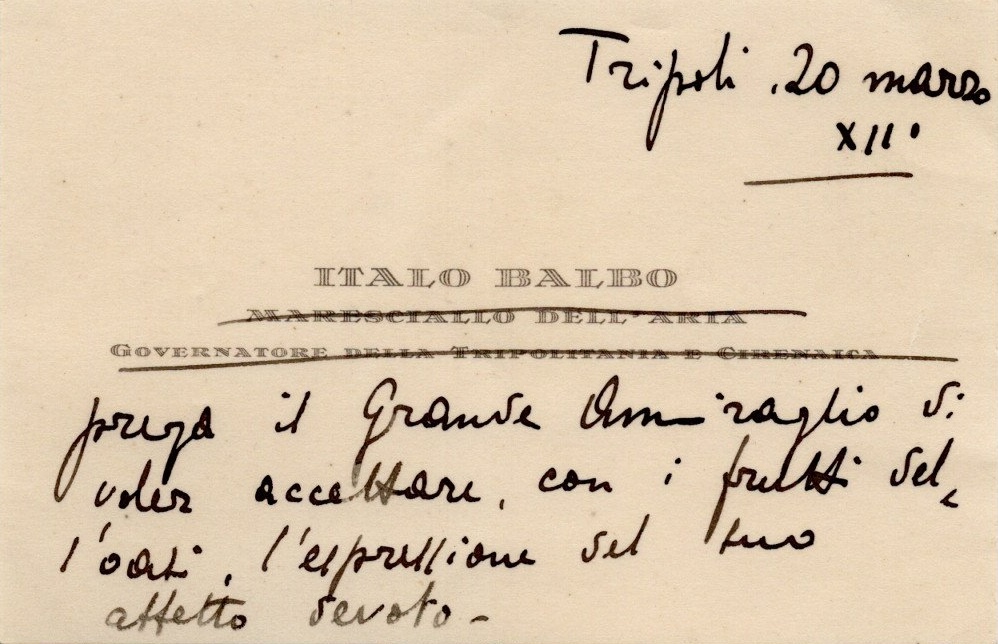 Tripoli, 20 marzo
XII°
ITALO BALBO
MARESCIALLO DELL'ARIA
GOVERNATORE DELLA TRIPOLITANIA E CIRENAICA
prega il Grande Ammiraglio di
voler accettare, con i frutti del-
l'oasi, l'espressione del suo
affetto devoto -